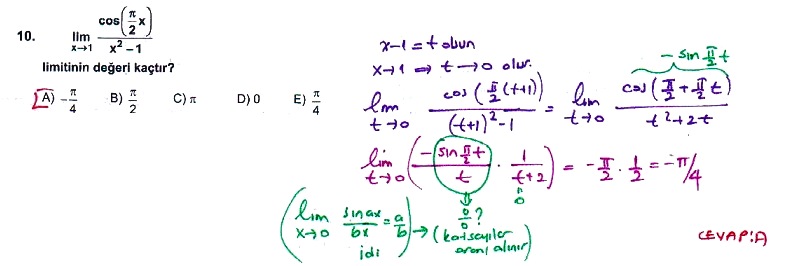 10. lim x→1 cos(π/2 x) / x² – 1
limitinin değeri kaçtır?
A) –π/4 B) π/2 C) π D) 0 E) π/4
x-1 = t olsun
x→1 ⇒ t→0 olur.
lim t→0 cos(π/2 (t+1)) / (t+1)² - 1 = lim t→0 cos(π/2 + π/2 t) / t² + 2t
- sin π/2 t
lim t→0 (- sin π/2 t / t · 1 / t+2) = - π/2 · 1/2 = - π/4
0
(lim x→0 sin ax / bx = a/b idi) → 0/0 ?
(katsayılar oranı alınır)
CEVAP: A